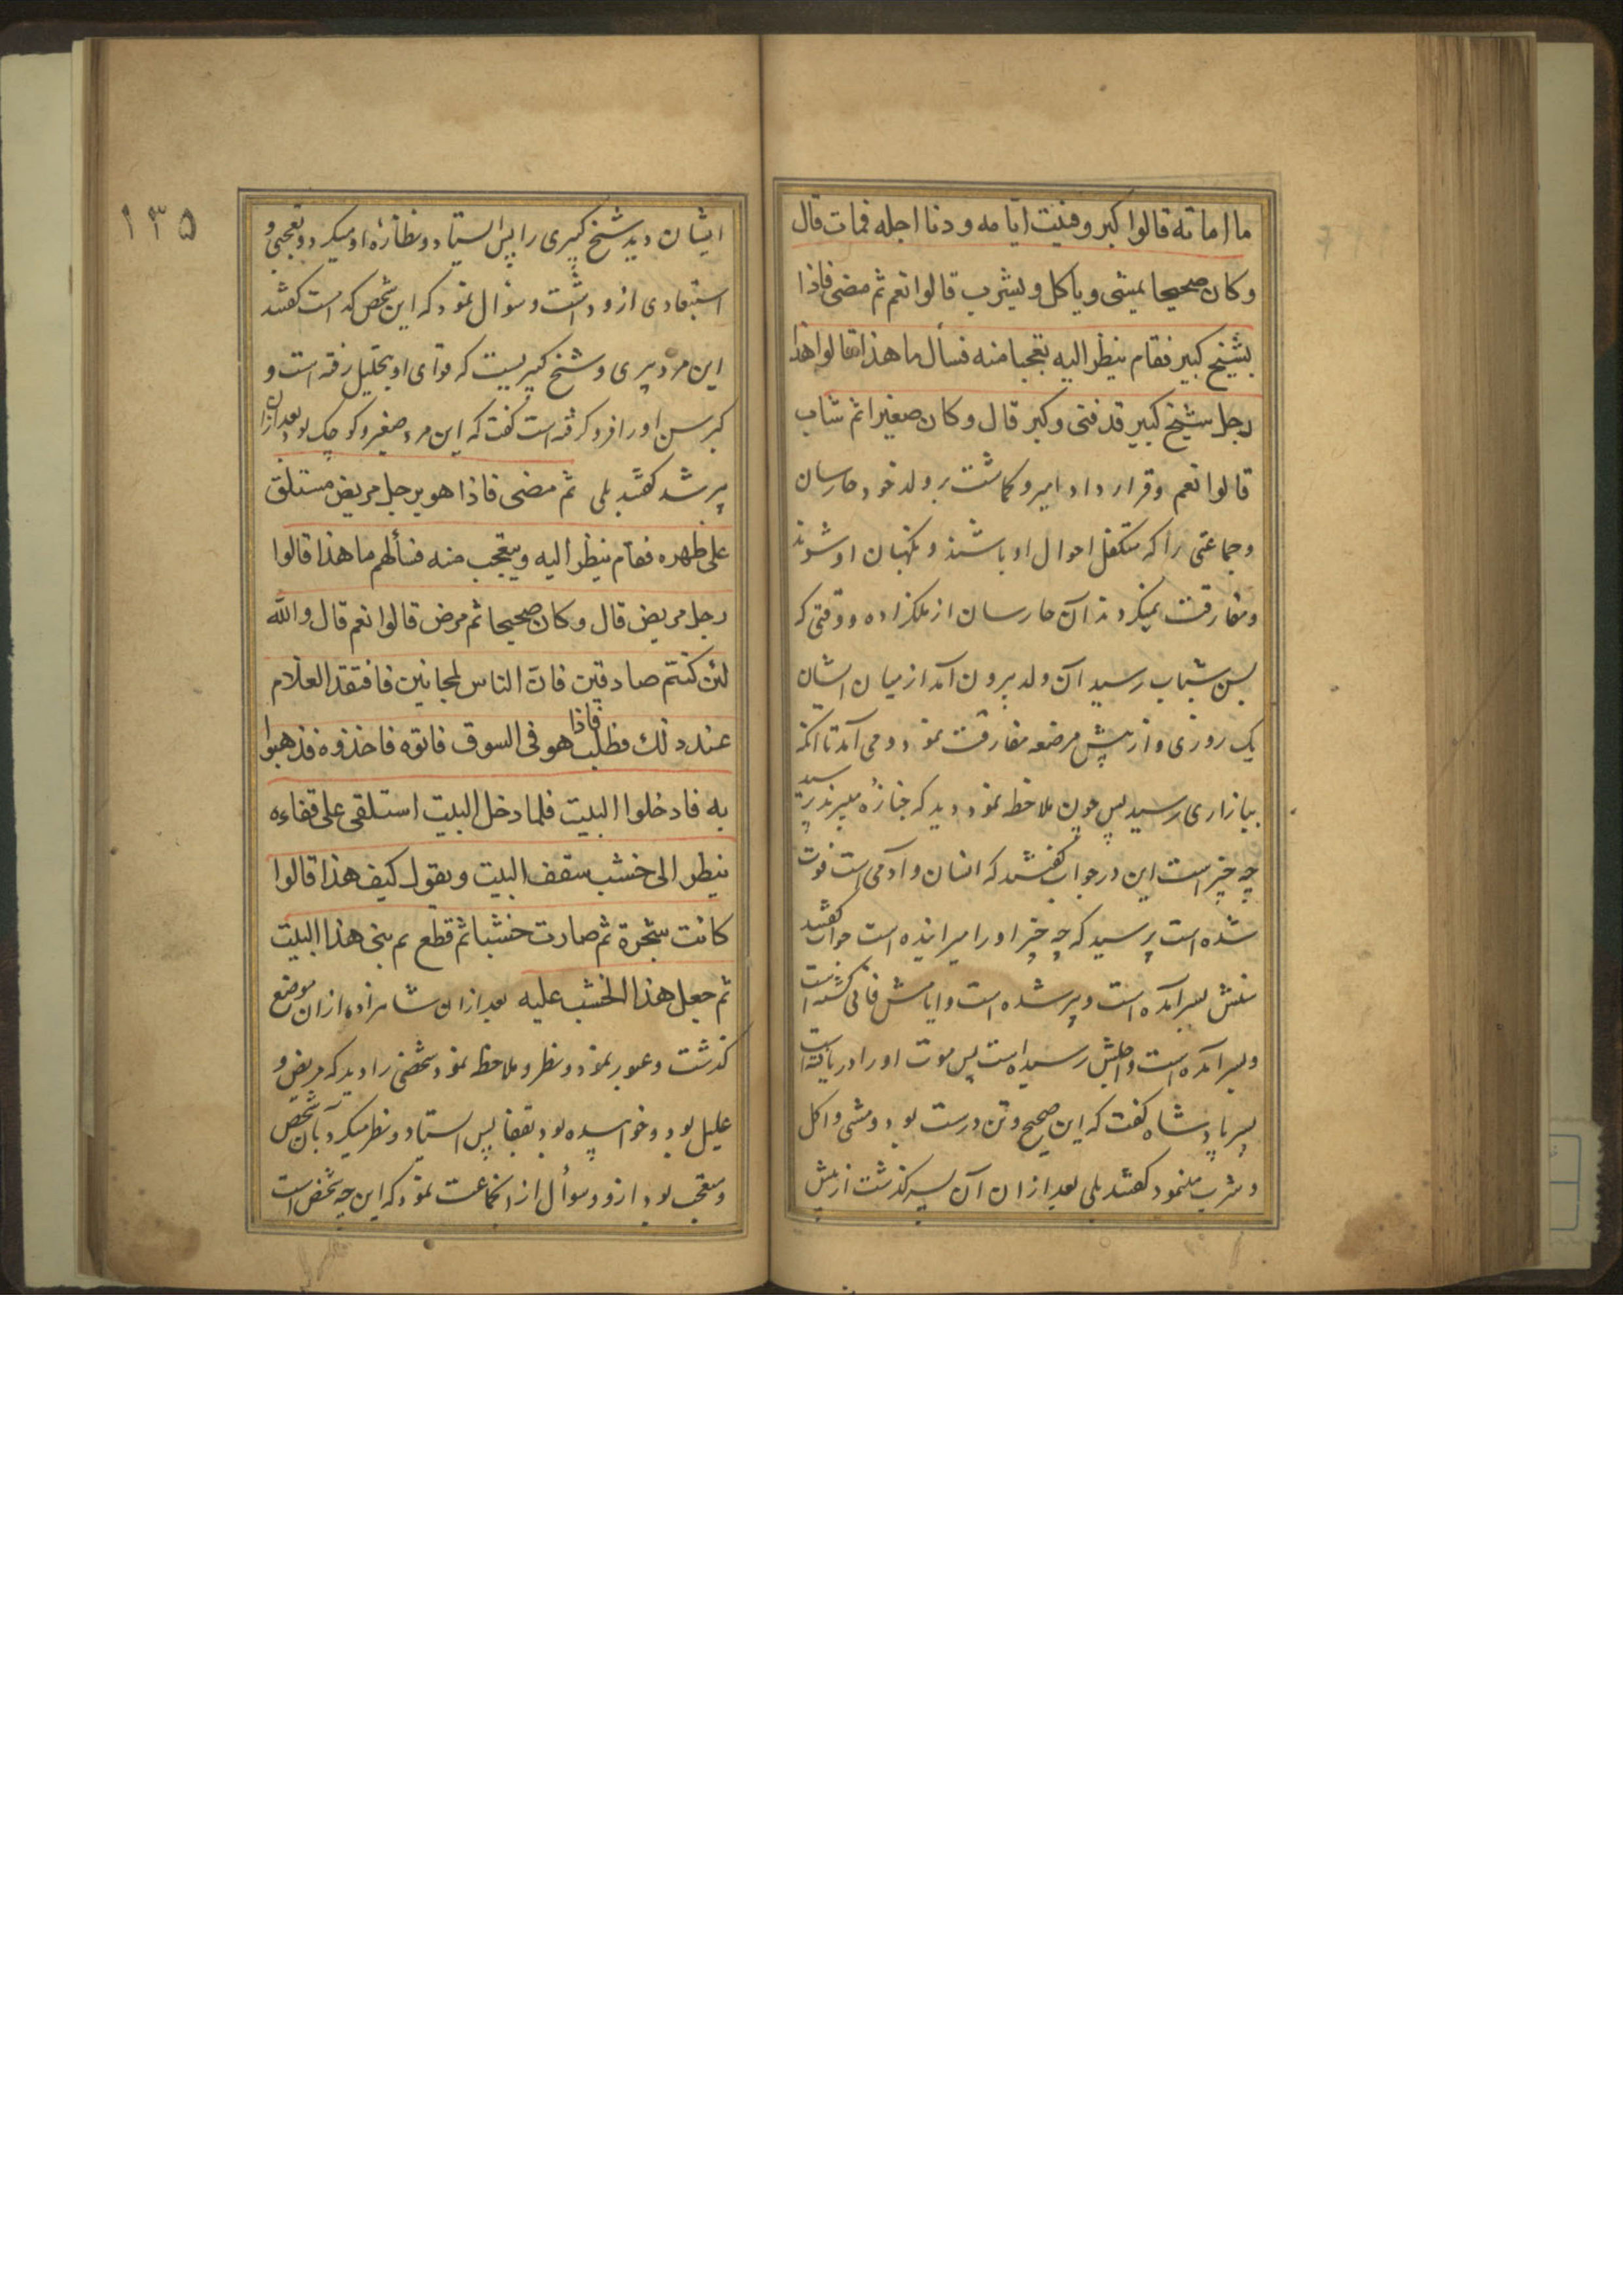 ما اماته قالوا كبر وفنيت ايامه ودنا اجله فمات قال
وكان صحيحا يمشى وياكل ويشرب قالوا نعم ثم مضى فاذا
بشيخ كبير فقام ينظر اليه تعجبا منه فسأل ما هذا قالوا هذا
رجل شيخ كبير قد فنى وكبر قال وكان صغيرا ثم شاب
قالوا نعم وقرار داد امير وكماشت بر ولد خود حارسان
وجماعتى را كه متكفل احوال او باشند ونكهبان او شوند
ومفارقت نميكردند آن حارسان از ملكزاده ووقتى كه
بسن شباب رسيد آن ولد بيرون آمد از ميان ايشان
يك روزى واز پيش مرضعه مفارقت نمود ومى آمد تا آنكه
ببازارى رسيد پس چون ملاحظه نمود ديد كه جنازه ميبرند پرسيد
چه چيز است اين در جواب كفتند كه انسان وآدمى است فوت
شده است پرسيد كه چه چيز اورا ميرانيده است جواب كفتند
سنش بسر آمده است وپير شده است وايامش فانى كشته است
وبسر آمده است واجلش رسيده است پس موت اورا دريافته است
پسر پادشاه كفت كه اين صحيح وتن درست بود ومشى واكل
وشرب مينمود كفتند بلى بعد ازان آن پسر كذشت از پيش
١٣٥
ايشان ديد شيخ كبيرى را پس ايستاد ونظاره او ميكرد وتعجبى و
استبعادى ازو داشت وسؤال نمود كه اين شخص كه است كفتند
اين مرد پيرى وشيخ كبيريست كه قواى او بتحليل رفته است و
كبر سن اورا فرو كرفته است كفت كه اين مرد صغير وكوچك بود بعد ازان
پير شد كفتند بلى ثم مضى فاذا هو برجل مريض مستلق
على ظهره فقام ينظر اليه ويتعجب منه فسألهم ما هذا قالوا
رجل مريض قال وكان صحيحا ثم مرض قالوا نعم قال والله
لئن كنتم صادقين فان الناس لمجانين فافتقد الغلام
عند ذلك فطلب فاذا هو فى السوق فاتوه فاخذوه فذهبوا
به فادخلوا البيت فلما دخل البيت استلقى على قفاءه
ينظر الى خشب سقف البيت ويقول كيف هذا قالوا
كانت شجرة ثم صارت خشبا ثم قطع ثم بنى هذا البيت
ثم جعل هذا الخشب عليه بعد ازان شاهزاده ازان موضع
كذشت وعبور نمود ونظر وملاحظه نمود شخصى را ديد كه مريض و
عليل بود وخوابيده بود بقفا پس ايستاد ونظر ميكرد بآن شخص
ومتعجب بود ازو وسوأل از آنجماعت نمود كه اين چه شخص است